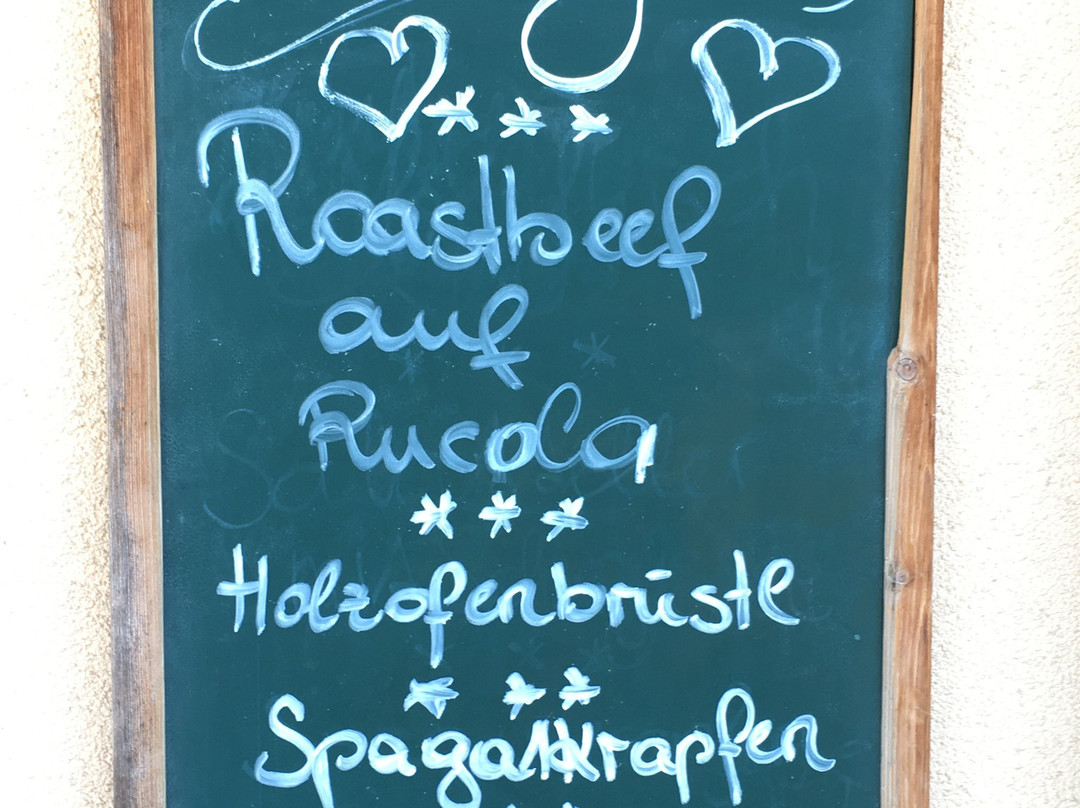 * * *
Roastbeef
auf
Rucola
* * *
Holzofenbrüstl
* * *
Spagatkrapfen